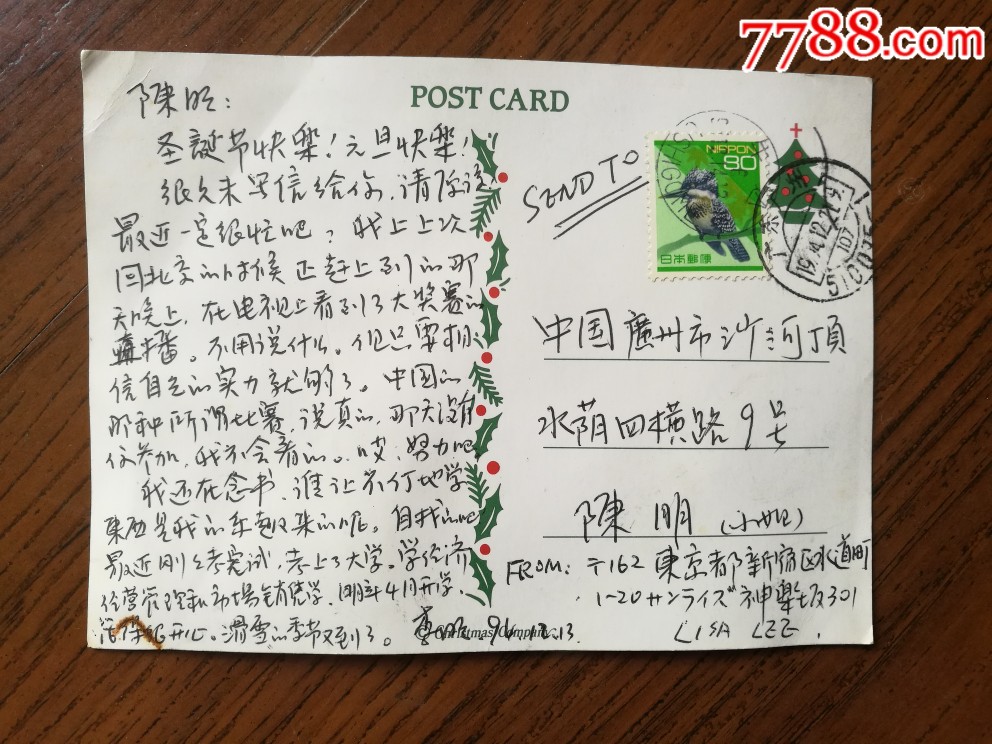 7788.com
POST CARD
陳明：
圣誕节快樂！元旦快樂！
很久未写信给你，请原谅
最近一定很忙吧？我上上次
回北京的时候正赶上到的那
天晚上，在电视上看到了大奖赛的
直播。不用说什么。但只要相
信自己的实力就够了。中国的
那种所谓比赛，说真的，那天没有
你参加，我不会看的。哎，努力吧
我还在念书，谁让不行地学
東西是我的乐趣
最近刚刚考完试，考上了大学。学经济
经营管理和市场销售学，明年4月开学。
开心。滑雪的季节又到了。
94.12.13
© Christmas Company
SEND TO
NIPPON
80
日本郵便
中国廣州市沙河頂
水荫四横路9号
陳明（小姐）
FROM: 〒162 東京都新宿区水道町
1-20 サンライズ神楽坂301
LISA LEE.